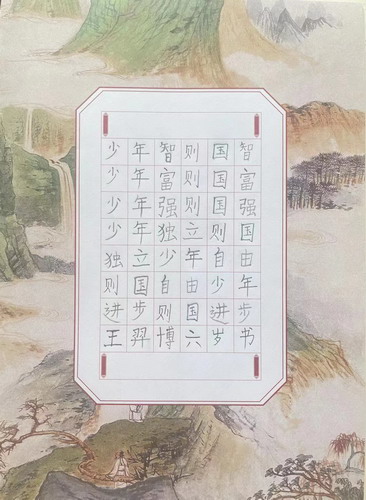 少年智则国智
少年富则国富
少年强则国强
少年独立则国
独立少年自由
则国自由少年
进步则国进步
王羿博六岁书